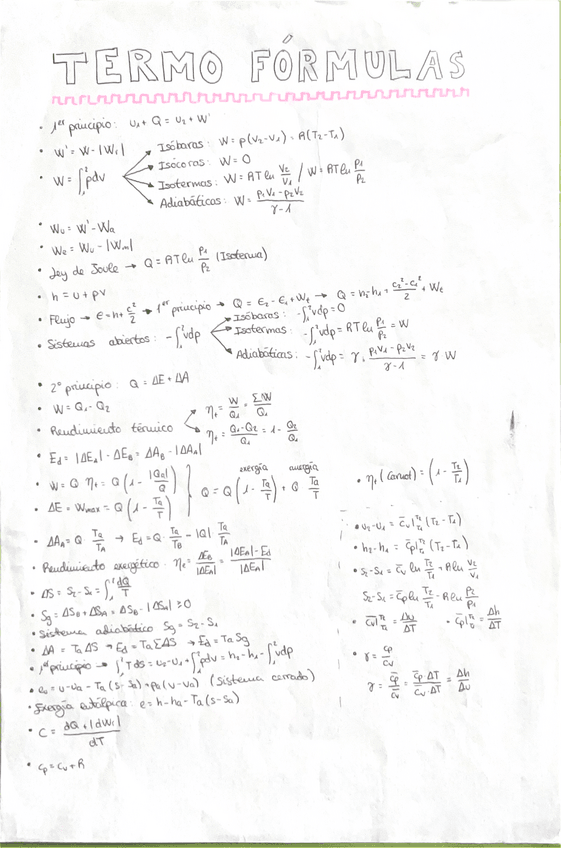 TERMO FÓRMULAS
• 1er principio: U₁ + Q = U₂ + W'
• W' = W - |Wr|
• W = ∫₁² pdv
Isóbaras: W = p(V₂-V₁) = R(T₂-T₁)
Isócoras: W = 0
Isotermas: W = RT ln V₂/V₁ / W = RT ln p₁/p₂
Adiabáticas: W = (p₁V₁ - p₂V₂)/(γ - 1)
• Wu = W' - Wa
• We = Wu - |Wm|
• Ley de Joule → Q = RT ln p₁/p₂ (Isoterma)
• h = u + pv
• Flujo → e = h + c²/2 → 1er principio → Q = e₂ - e₁ + Wt → Q = h₂ - h₁ + (c₂² - c₁²)/2 + Wt
• Sistemas abiertos: -∫₁² vdp
Isóbaras: -∫₁² vdp = 0
Isotermas: -∫₁² vdp = RT ln p₁/p₂ = W
Adiabáticas: -∫₁² vdp = γ · (p₁V₁ - p₂V₂)/(γ - 1) = γ W
• 2º principio: Q = ΔE + ΔA
• W = Q₁ - Q₂
• Rendimiento térmico
ηt = W/Q₁ = ΣW/Q₁
ηt = (Q₁ - Q₂)/Q₁ = 1 - Q₂/Q₁
• Ed = |ΔEA| - ΔEB = ΔAB - |ΔAA|
• W = Q · ηt = Q (1 - |Qa|/Q)
• ΔE = Wmax = Q (1 - Ta/T)
exergía anergía
Q = Q (1 - Ta/T) + Q Ta/T
• ΔAA = Q · Ta/TA → Ed = Q · Ta/TB - |Q| Ta/TA
• Rendimiento exergético: ηe = ΔEB/|ΔEA| = (|ΔEA| - Ed)/|ΔEA|
• ΔS = S₂ - S₁ = ∫₁² dQ/T
• Sg = ΔSB + ΔSA = ΔSB - |ΔSA| ≥ 0
• Sistema adiabático Sg = S₂ - S₁
• ΔA = Ta ΔS → Ed = Ta ΣΔS → Ed = Ta Sg
• 1er principio → ∫₁² Tds = U₂ - U₁ + ∫₁² pdv = h₂ - h₁ - ∫₁² vdp
• e₀ = u - ua - Ta(s - sa) + pa(v - va) (Sistema cerrado)
• Exergía entálpica: e = h - ha - Ta(s - sa)
• C = (dQ + |dWr|)/dT
• cp = cv + R
• ηt (Carnot) = (1 - T₂/T₁)
• U₂ - U₁ = c̄v|T₂T₁ (T₂ - T₁)
• h₂ - h₁ = c̄p|T₂T₁ (T₂ - T₁)
• S₂ - S₁ = c̄v ln T₂/T₁ + R ln V₂/V₁
S₂ - S₁ = c̄p ln T₂/T₁ - R ln p₂/p₁
• c̄v|T₂T₁ = Δu/ΔT • c̄p|T₂T₁ = Δh/ΔT
• γ = cp/cv
γ = c̄p/c̄v = (c̄p ΔT)/(c̄v · ΔT) = Δh/Δu